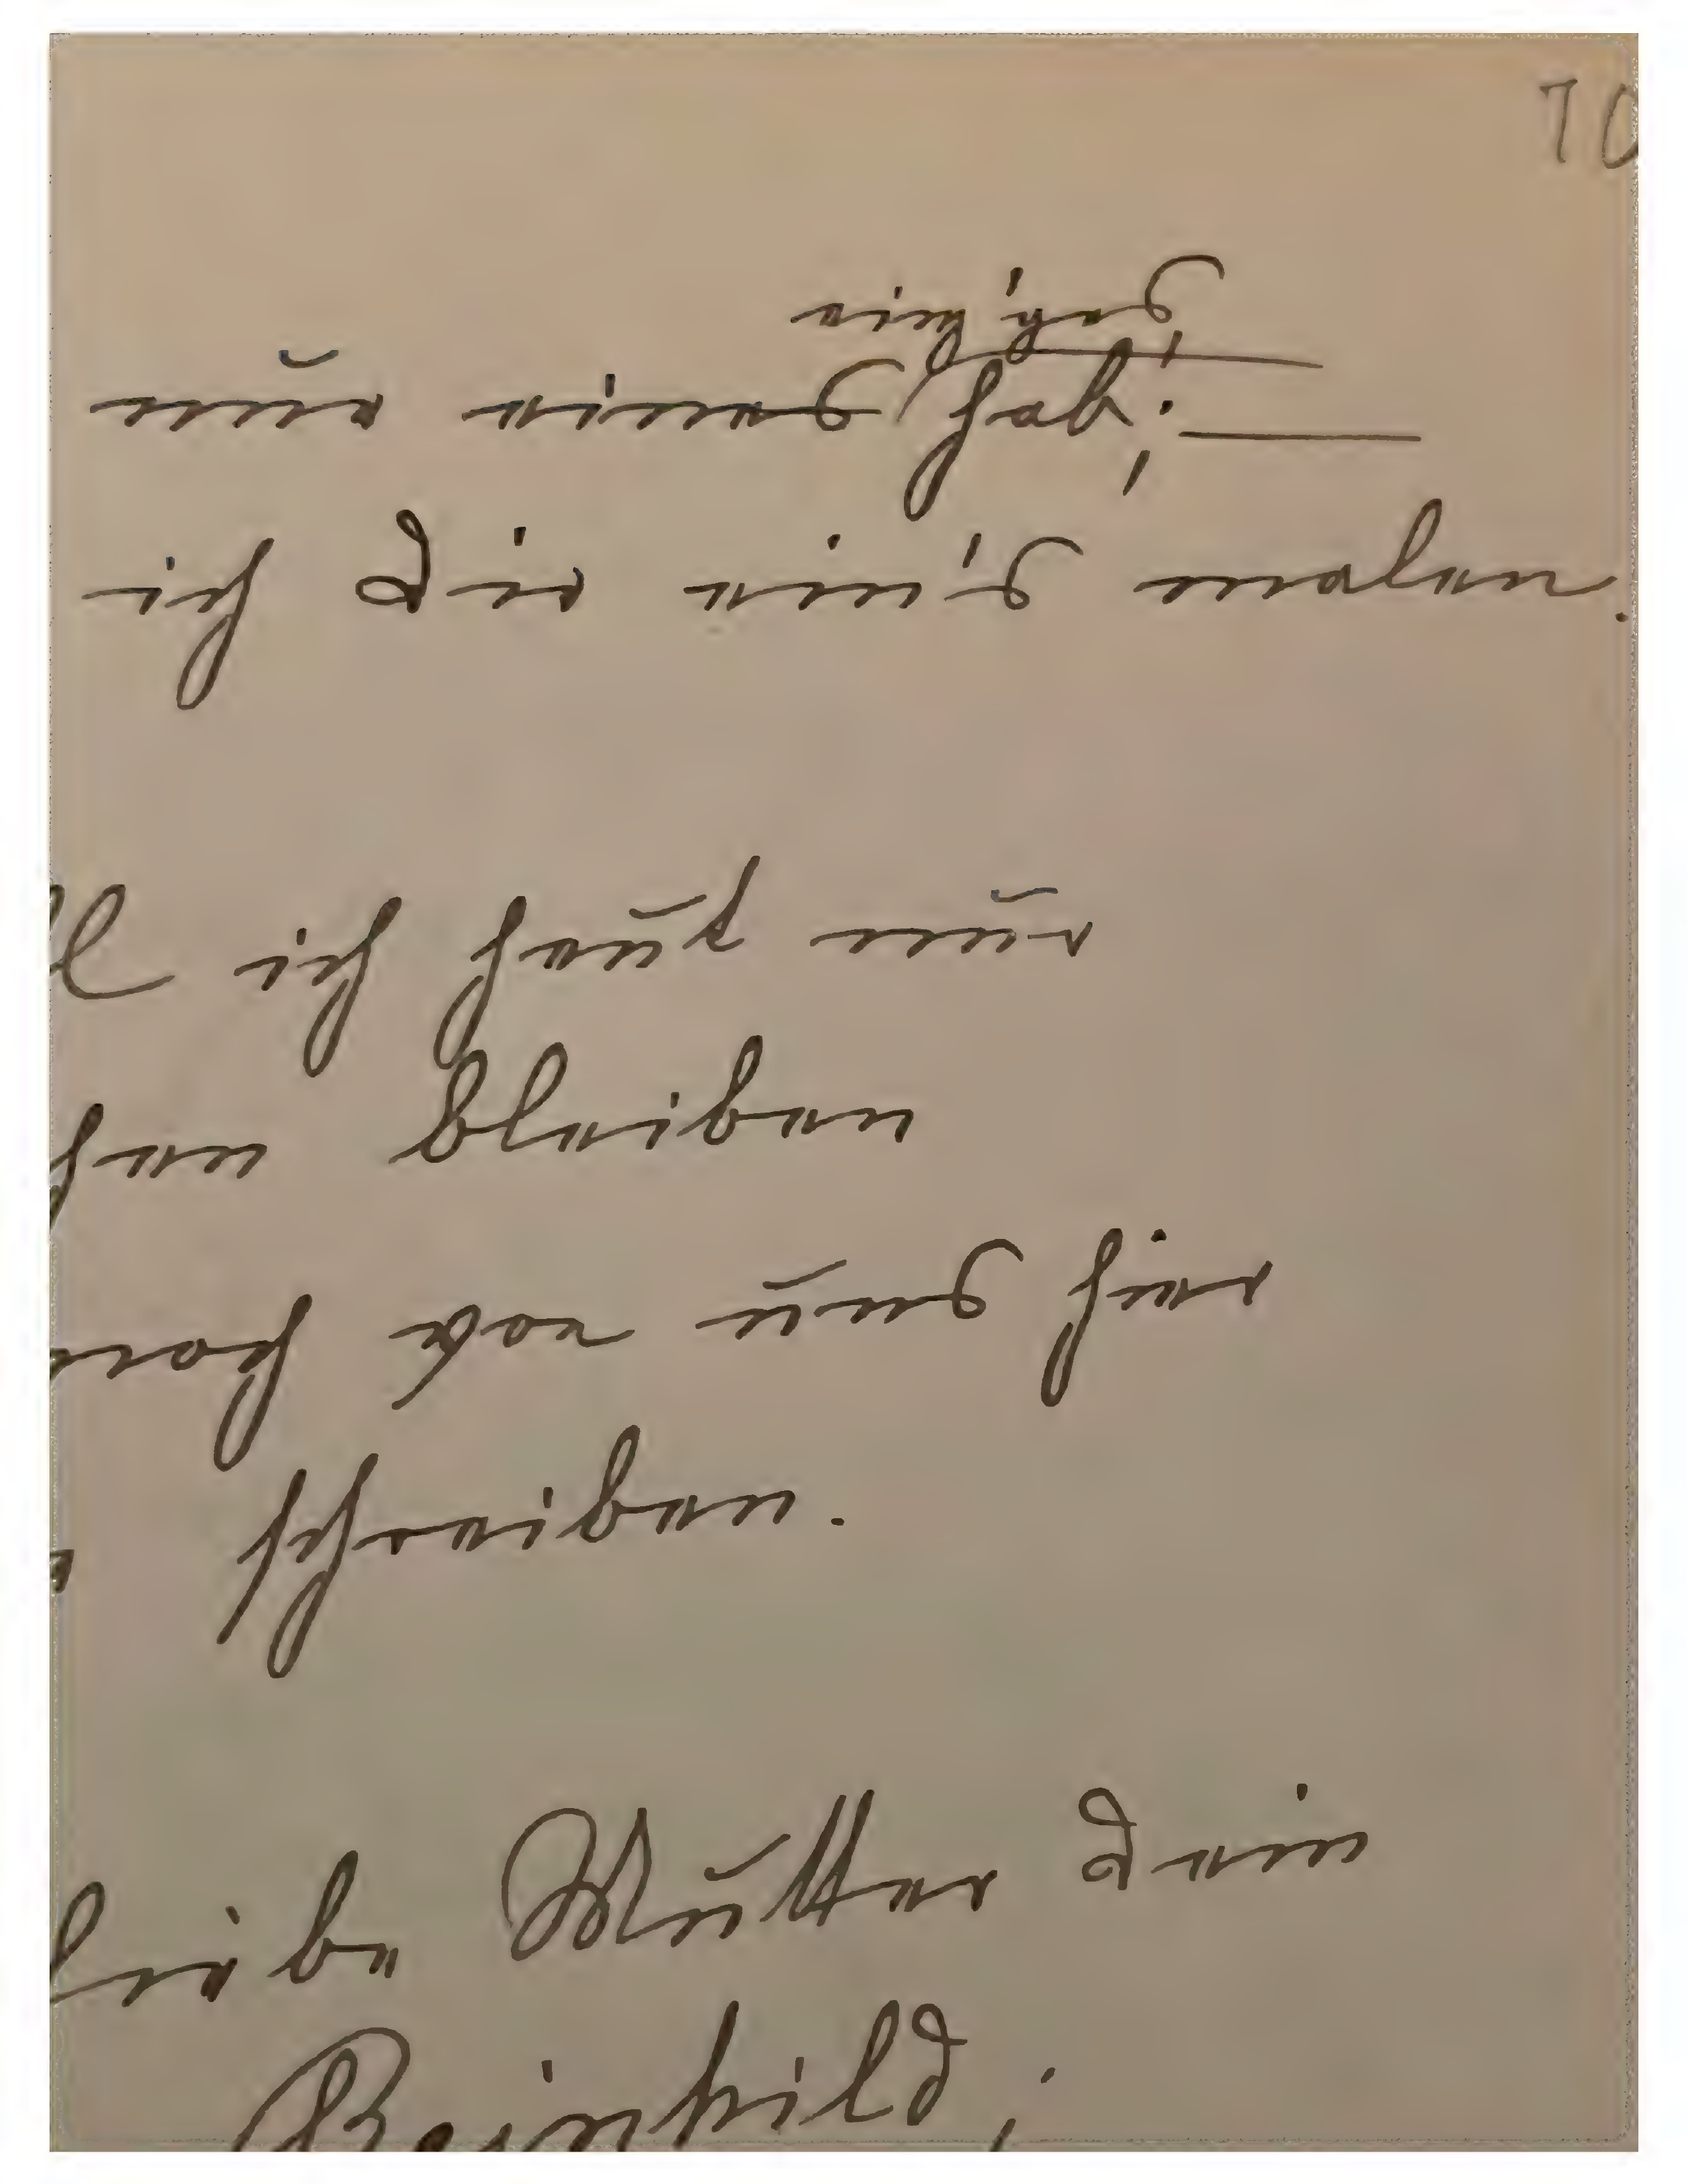 70
einziges
nur eines hab;
ich dir ein's malen.
ich heut nur
bleiben
noch von uns hier
schreiben.
liebe Mutter dein
Reinhild;